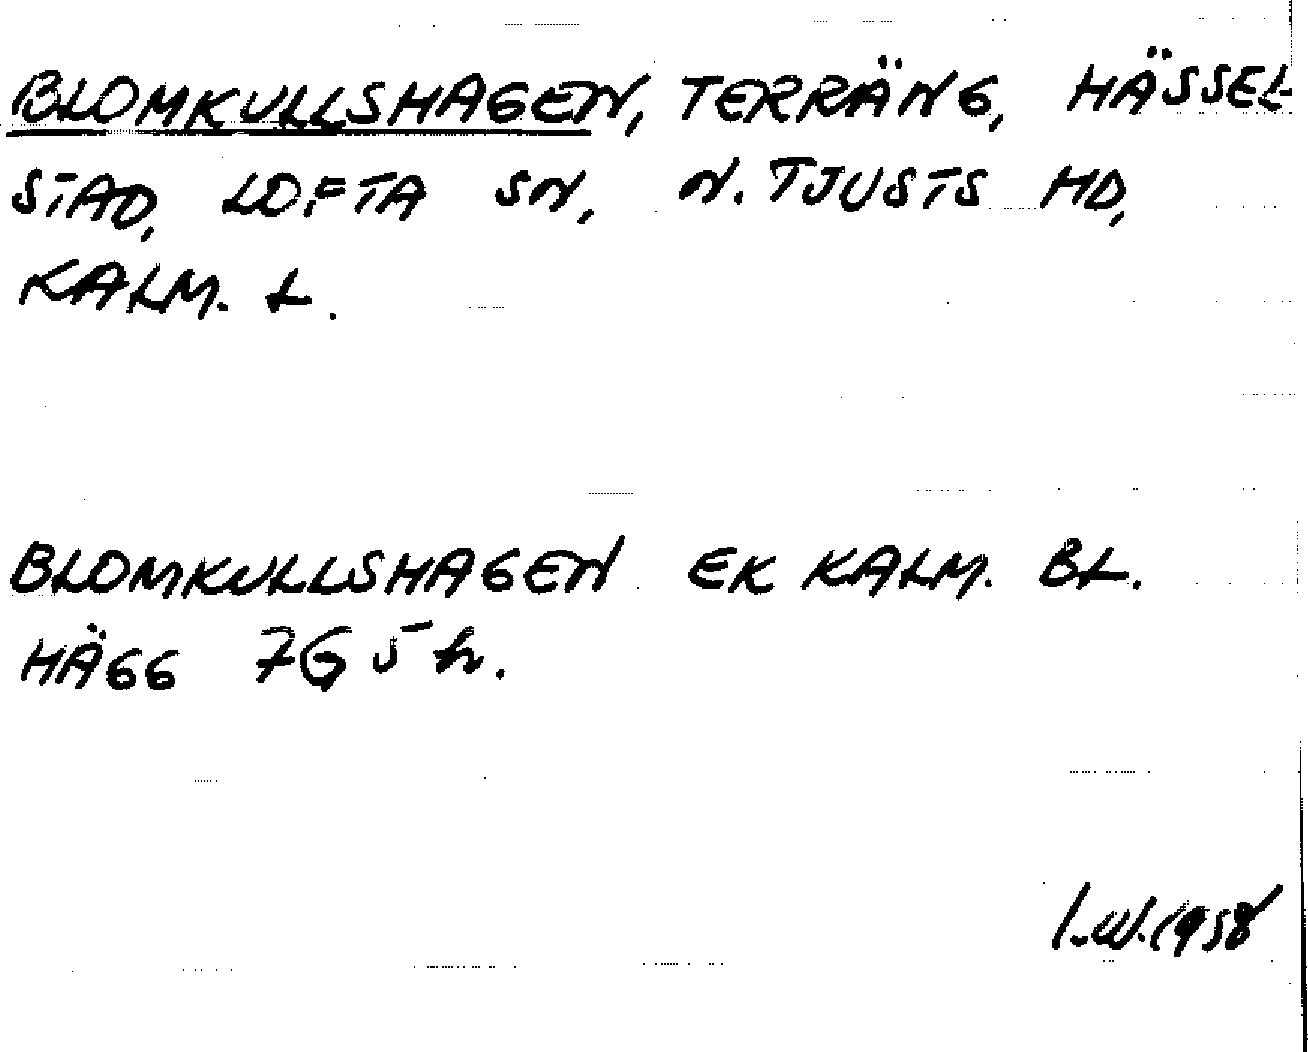 BLOMKULLSHAGEN, TERRÄNG, HÄSSEL-
STAD, LOFTA SN, N. TJUSTS HD,
KALM. L.
BLOMKULLSHAGEN EK KALM. BL.
HÄGG 7G 5 h.
I.W. 1958